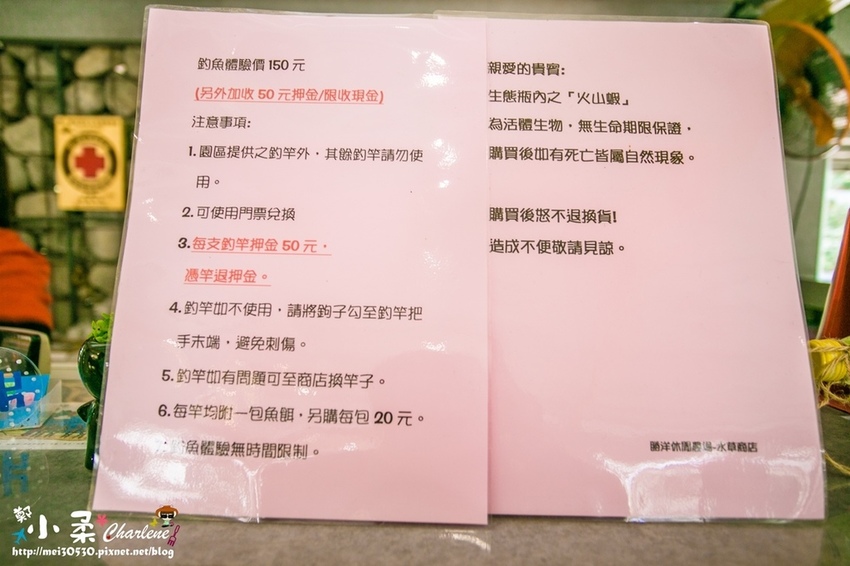 釣魚體驗價150元
(另外加收50元押金/限收現金)
注意事項:
1.園區提供之釣竿外，其餘釣竿請勿使
用。
2.可使用門票兌換
3.每支釣竿押金50元，
憑竿退押金。
4.釣竿如不使用，請將鉤子勾至釣竿把
手末端，避免刺傷。
5.釣竿如有問題可至商店換竿子。
6.每竿均附一包魚餌，另購每包20元。
釣魚體驗無時間限制。
親愛的貴賓:
生態瓶內之「火山蝦」
為活體生物，無生命期限保證，
購買後如有死亡皆屬自然現象。
購買後恕不退換貨!
造成不便敬請見諒。
勝洋休閒農場-水草商店
鄭小柔 Charlene
http://mei30530.pixnet.net/blog